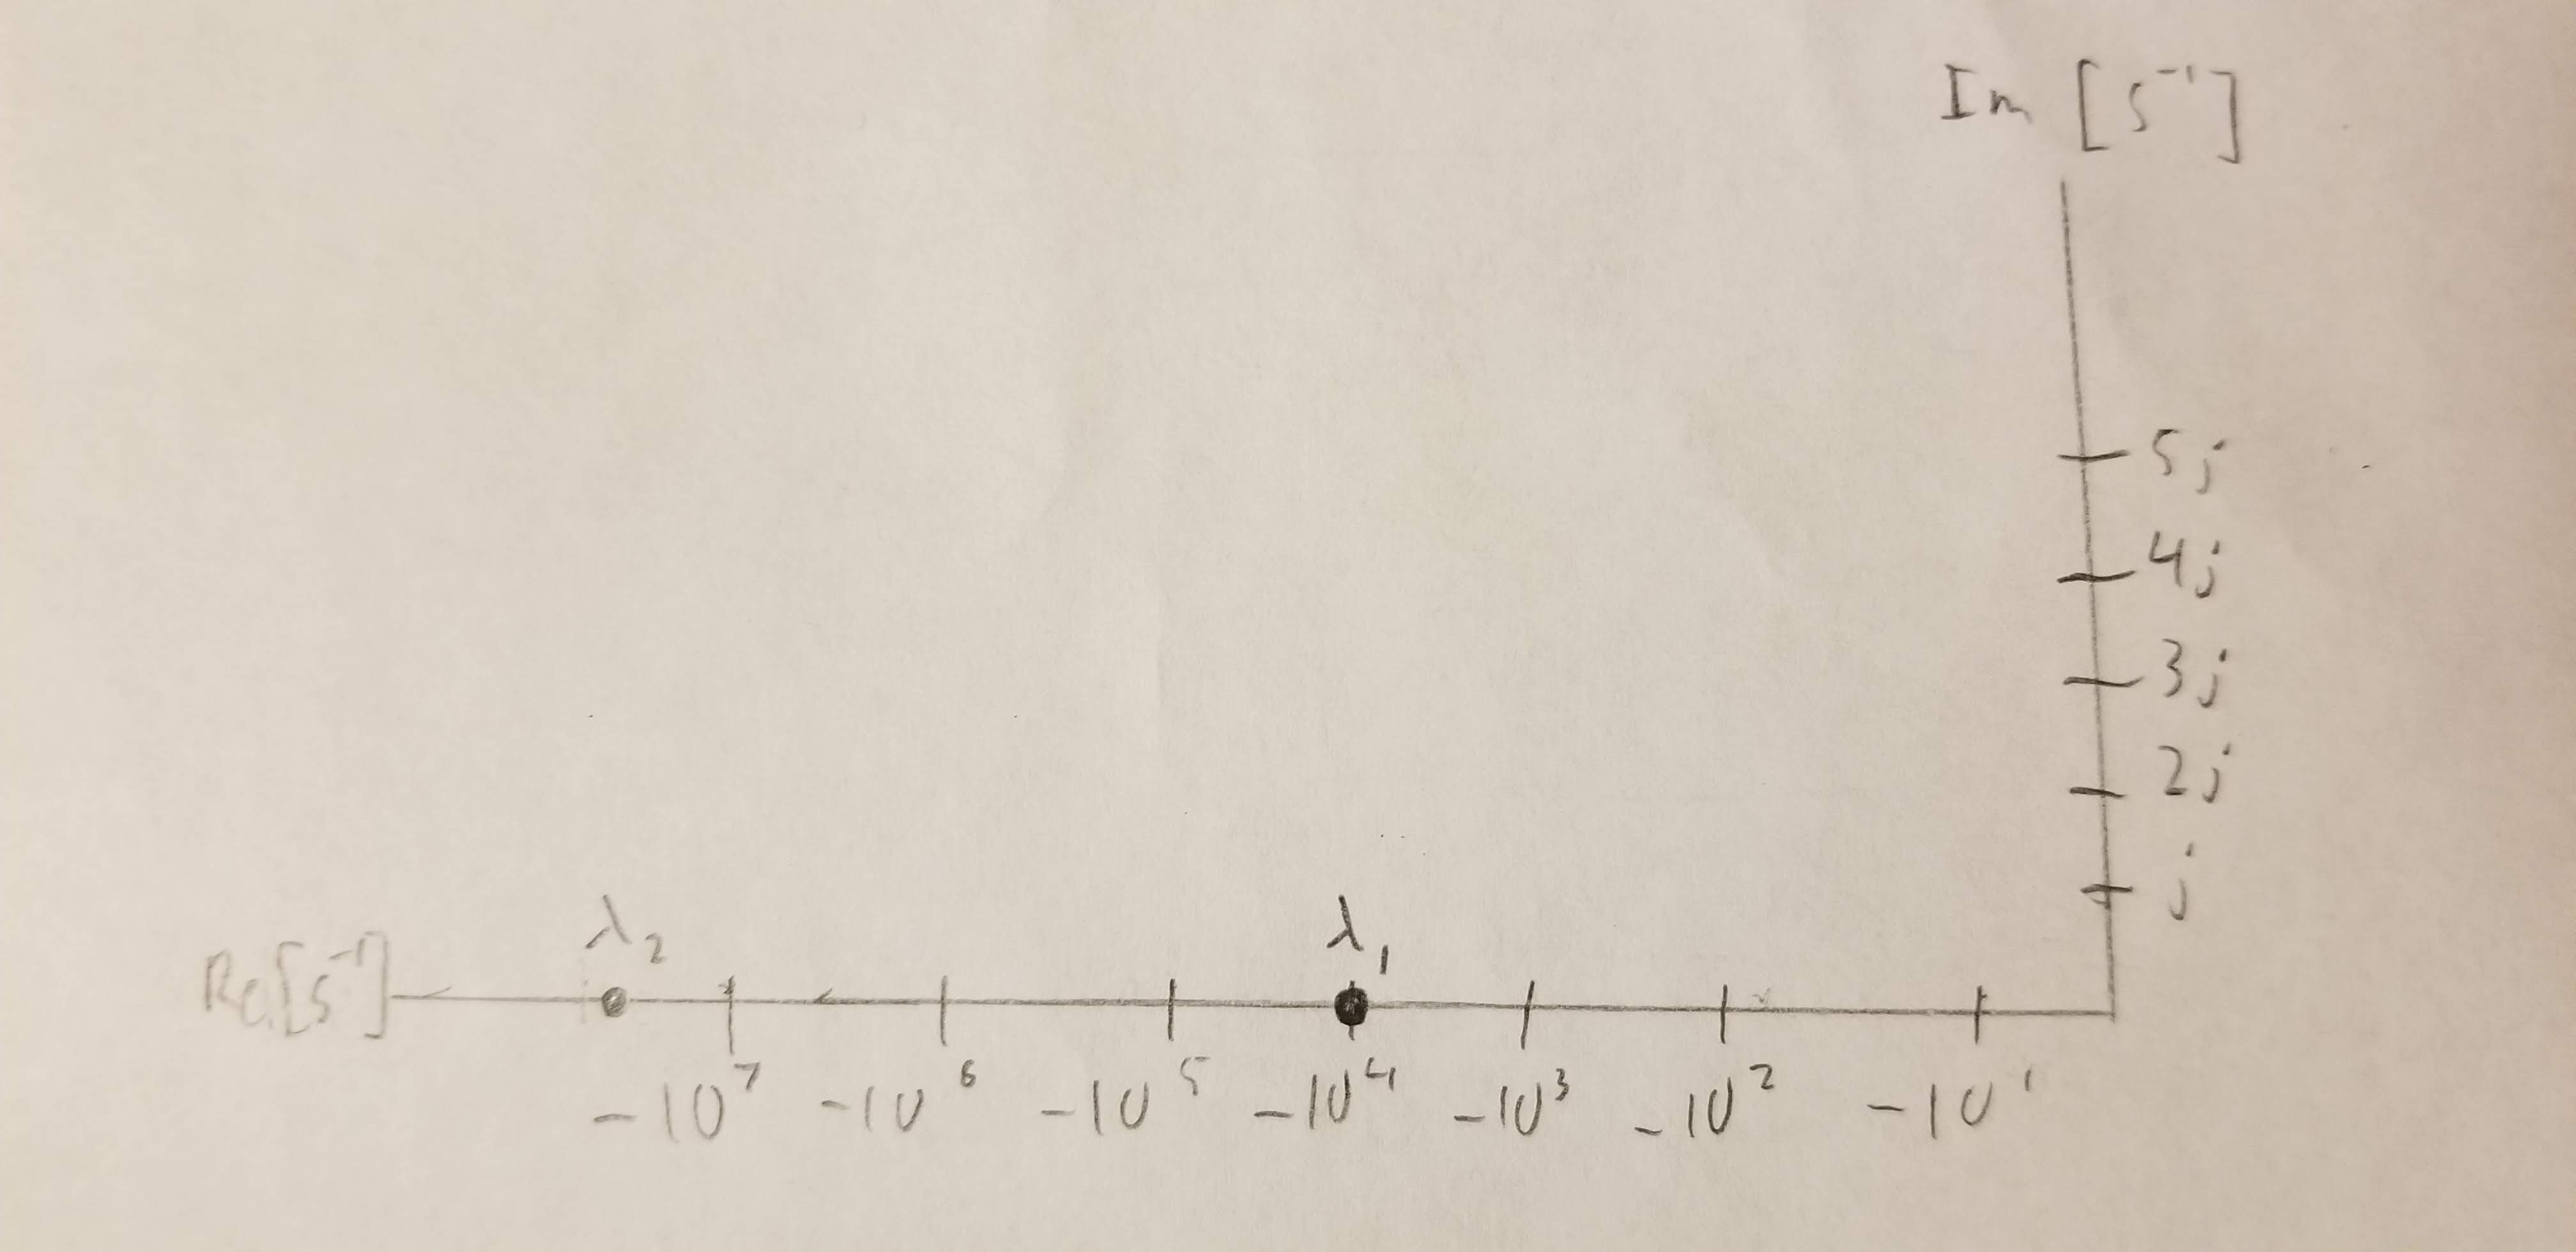 Im [s⁻¹]
5j
4j
3j
2j
j
λ₂ λ₁
Re [s⁻¹]
-10⁷ -10⁶ -10⁵ -10⁴ -10³ -10² -10¹